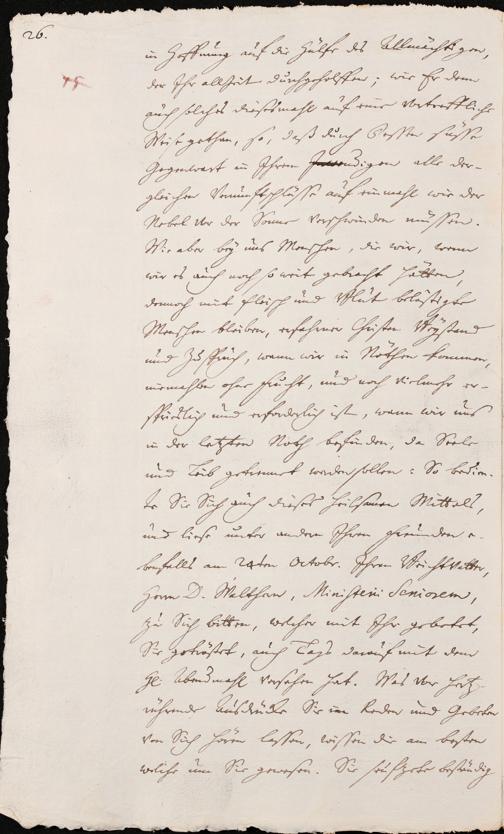 26.
in Hoffnung auf die Hülfe des Allmächtigen,
der Ihr allzeit durchgeholffen; wie Er denn
auch solches dießmahl auf eine vortreffliche
Weise gethan, so, daß durch Dessen süsse
Gegenwart in Ihrem alle der-
gleichen Vernunftschlüsse auf einmahl wie der
Nebel vor der Sonne verschwinden müssen.
Wie aber bey uns Menschen, die wir, wenn
wir es auch noch so weit gebracht hätten,
dennoch mit Fleisch und Blut belästigte
Menschen bleiben, erfahrner Christen Beystand
und Zuspruch, wann wir in Nöthen kommen,
niemahls ohne Frucht, und noch vielmehr er-
sprießlich und erforderlich ist, wann wir uns
in der letzten Noth befinden, da Seele
und Leib getrennet werden sollen: So bedien-
te Sie Sich auch dieses heilsamen Mittels,
und liese unter andern Ihren Freunden e-
benfalls am 24ten Octobr. Ihren Beichtvatter,
Herrn D. Walthern, Ministerii Seniorem,
zu Sich bitten, welcher mit Ihr gebetet,
Sie getröstet, auch Tags darauf mit dem
Hl. Abendmahl versehen hat. Was vor Hertz-
rührende Ausdrücke Sie im Reden und Gebeten
von Sich hören lassen, wissen die am besten
welche um Sie gewesen. Sie seufzete beständig